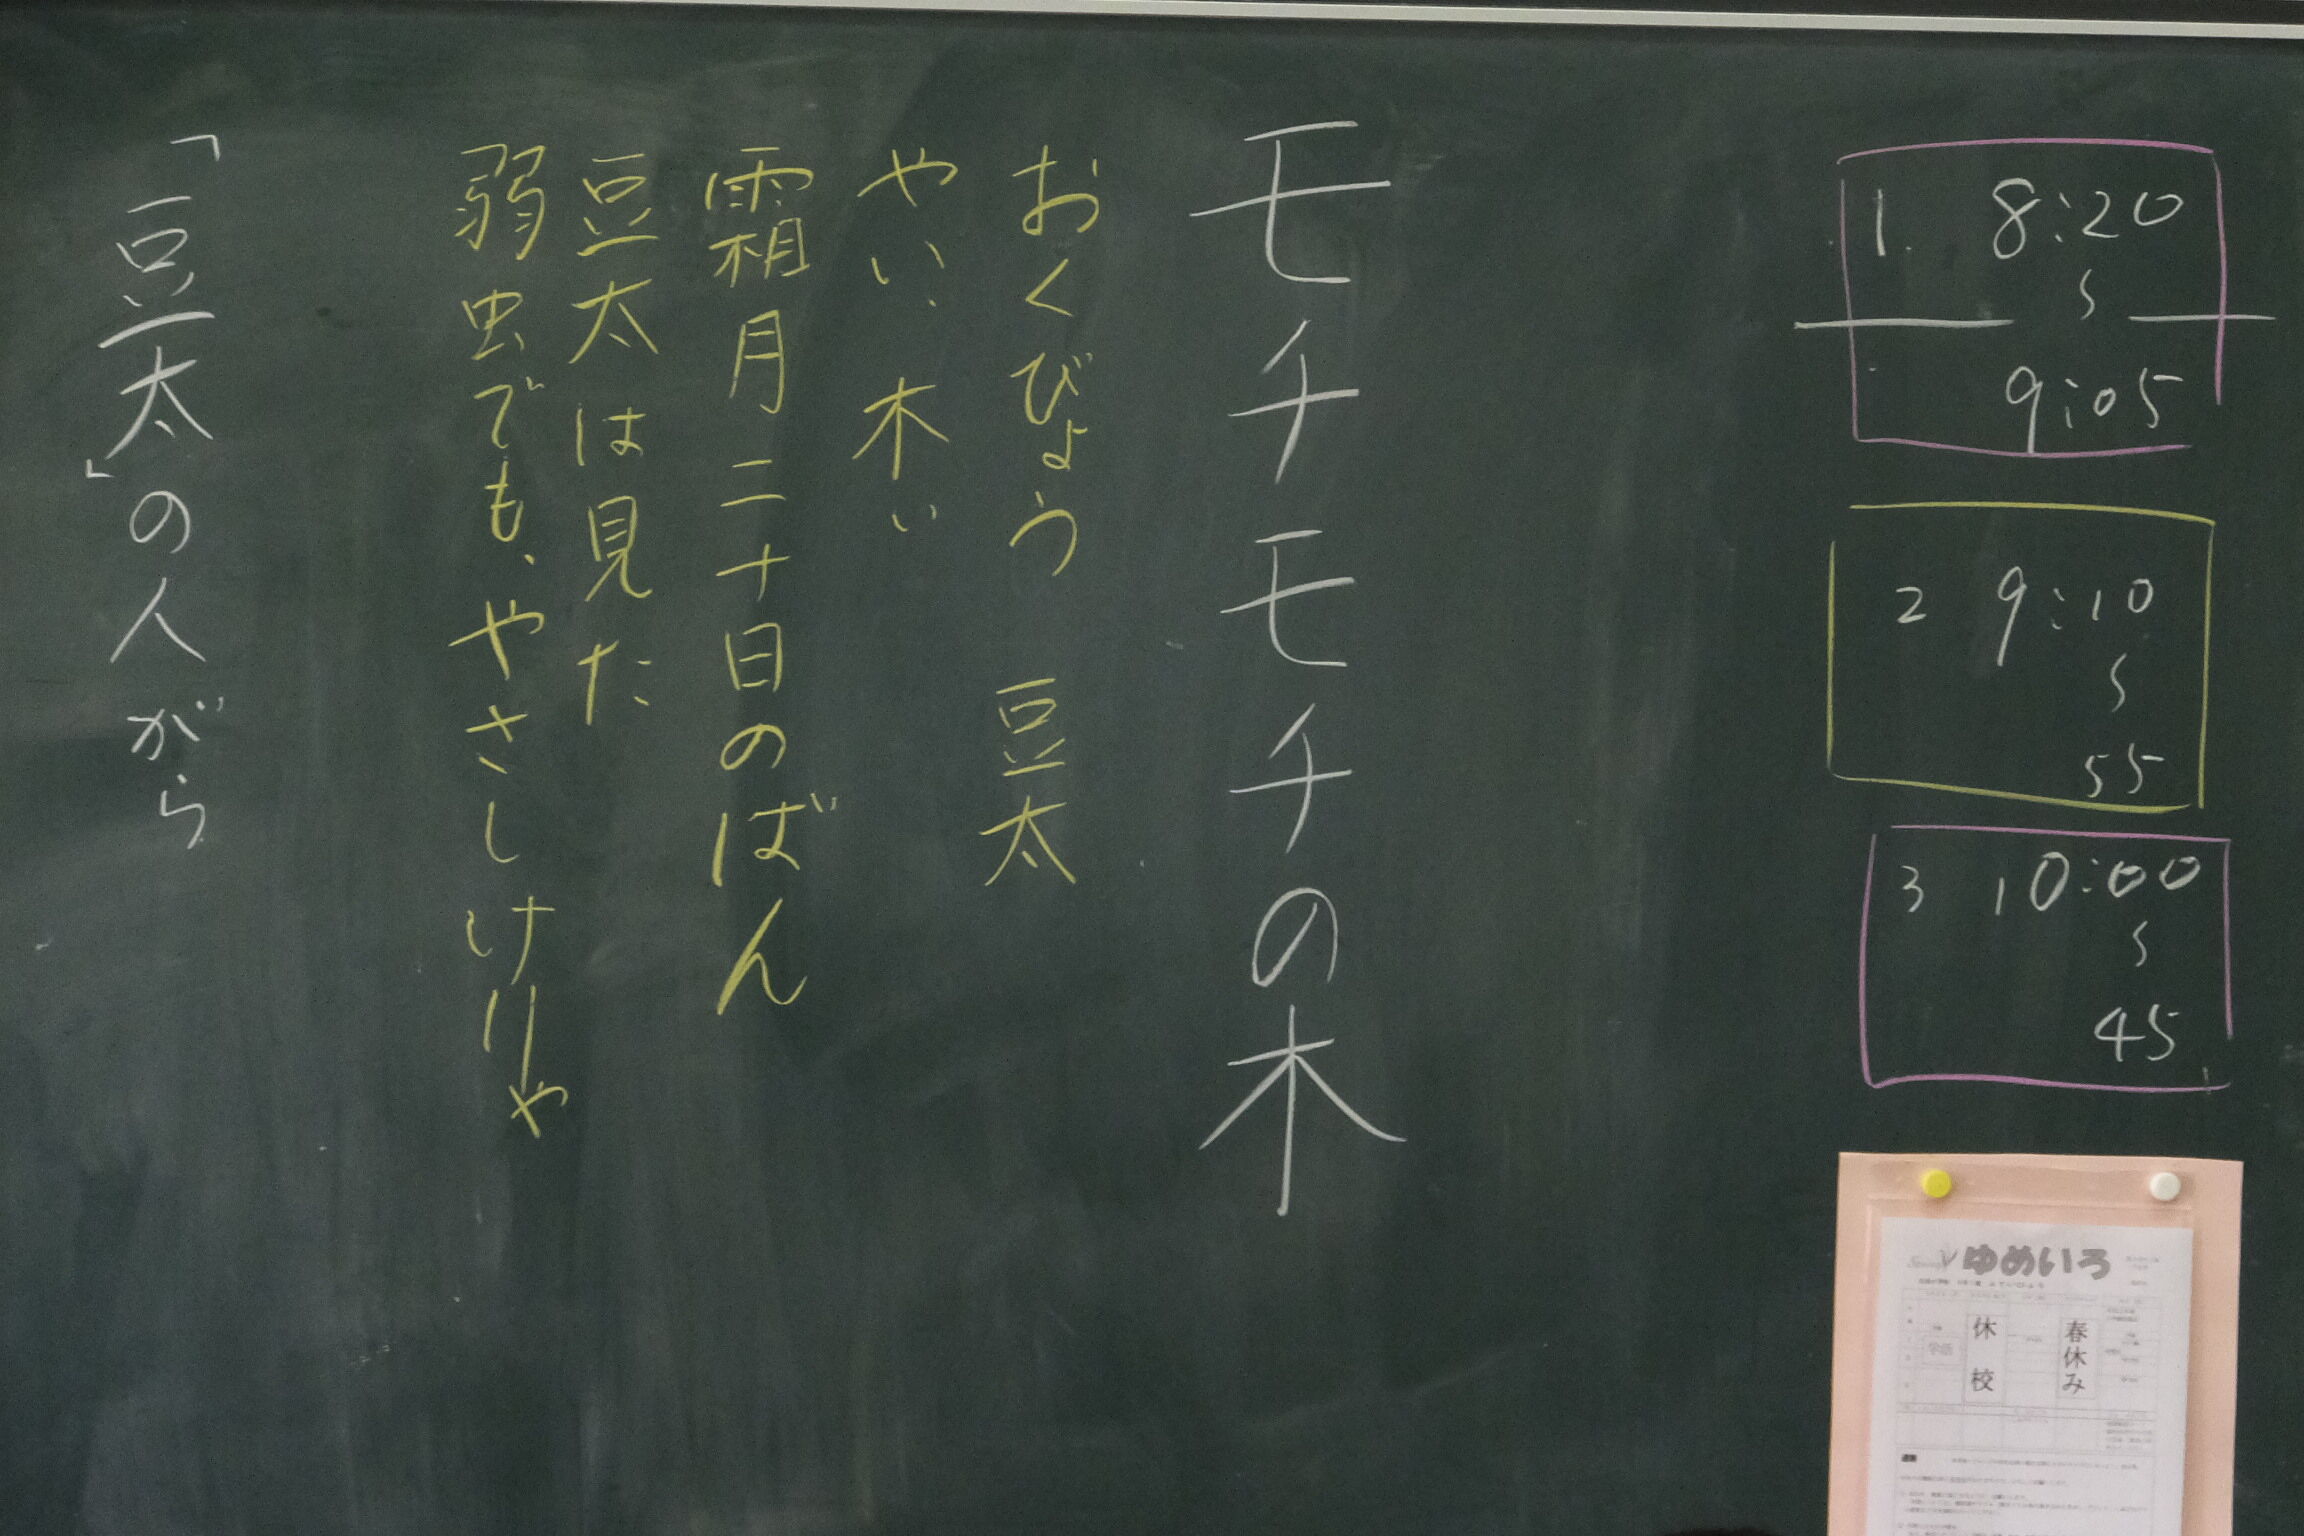 1. 8:20
〜
9:05
2 9:10
〜
55
3 10:00
〜
45
モチモチの木
おくびょう 豆太
やい、木ぃ
霜月二十日のばん
豆太は見た
弱虫でも、やさしけりゃ
「豆太」の人がら
ゆめいろ
休校
春休み
学活